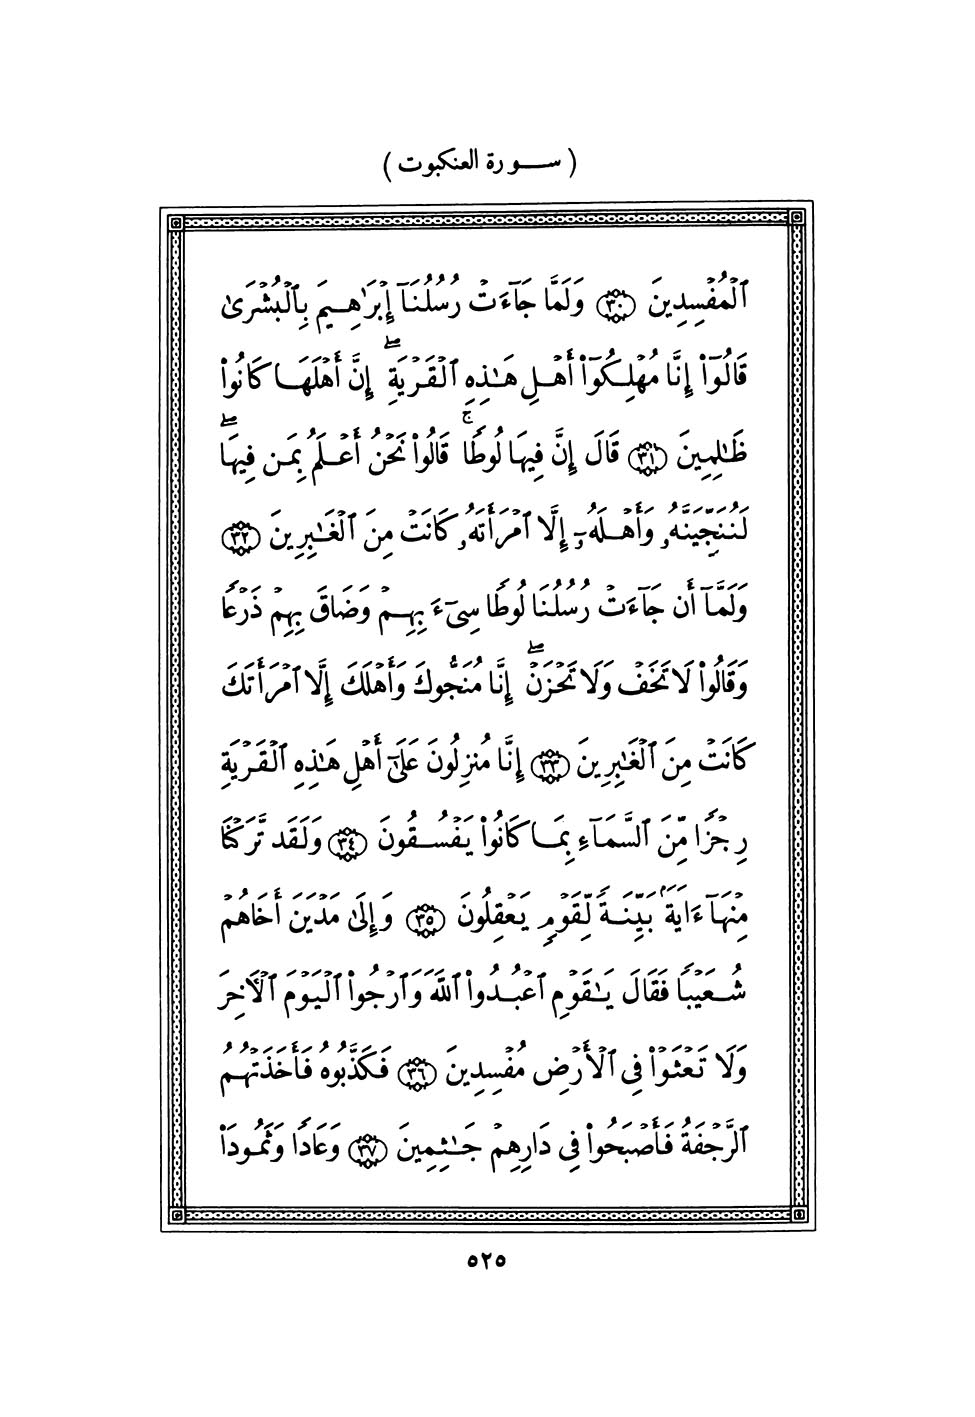 ( ســورة العنكبوت )
ٱلْمُفْسِدِينَ ٣٠ وَلَمَّا جَآءَتْ رُسُلُنَآ إِبْرَٰهِيمَ بِٱلْبُشْرَىٰ
قَالُوٓا۟ إِنَّا مُهْلِكُوٓا۟ أَهْلِ هَـٰذِهِ ٱلْقَرْيَةِ ۖ إِنَّ أَهْلَهَا كَانُوا۟
ظَـٰلِمِينَ ٣١ قَالَ إِنَّ فِيهَا لُوطًا ۚ قَالُوا۟ نَحْنُ أَعْلَمُ بِمَن فِيهَا ۖ
لَنُنَجِّيَنَّهُۥ وَأَهْلَهُۥٓ إِلَّا ٱمْرَأَتَهُۥ كَانَتْ مِنَ ٱلْغَـٰبِرِينَ ٣٢
وَلَمَّآ أَن جَآءَتْ رُسُلُنَا لُوطًا سِىٓءَ بِهِمْ وَضَاقَ بِهِمْ ذَرْعًا
وَقَالُوا۟ لَا تَخَفْ وَلَا تَحْزَنْ ۖ إِنَّا مُنَجُّوكَ وَأَهْلَكَ إِلَّا ٱمْرَأَتَكَ
كَانَتْ مِنَ ٱلْغَـٰبِرِينَ ٣٣ إِنَّا مُنزِلُونَ عَلَىٰٓ أَهْلِ هَـٰذِهِ ٱلْقَرْيَةِ
رِجْزًا مِّنَ ٱلسَّمَآءِ بِمَا كَانُوا۟ يَفْسُقُونَ ٣٤ وَلَقَد تَّرَكْنَا
مِنْهَآ ءَايَةًۢ بَيِّنَةً لِّقَوْمٍ يَعْقِلُونَ ٣٥ وَإِلَىٰ مَدْيَنَ أَخَاهُمْ
شُعَيْبًا فَقَالَ يَـٰقَوْمِ ٱعْبُدُوا۟ ٱللَّهَ وَٱرْجُوا۟ ٱلْيَوْمَ ٱلْـَٔاخِرَ
وَلَا تَعْثَوْا۟ فِى ٱلْأَرْضِ مُفْسِدِينَ ٣٦ فَكَذَّبُوهُ فَأَخَذَتْهُمُ
ٱلرَّجْفَةُ فَأَصْبَحُوا۟ فِى دَارِهِمْ جَـٰثِمِينَ ٣٧ وَعَادًا وَثَمُودَا۟
٥٢٥